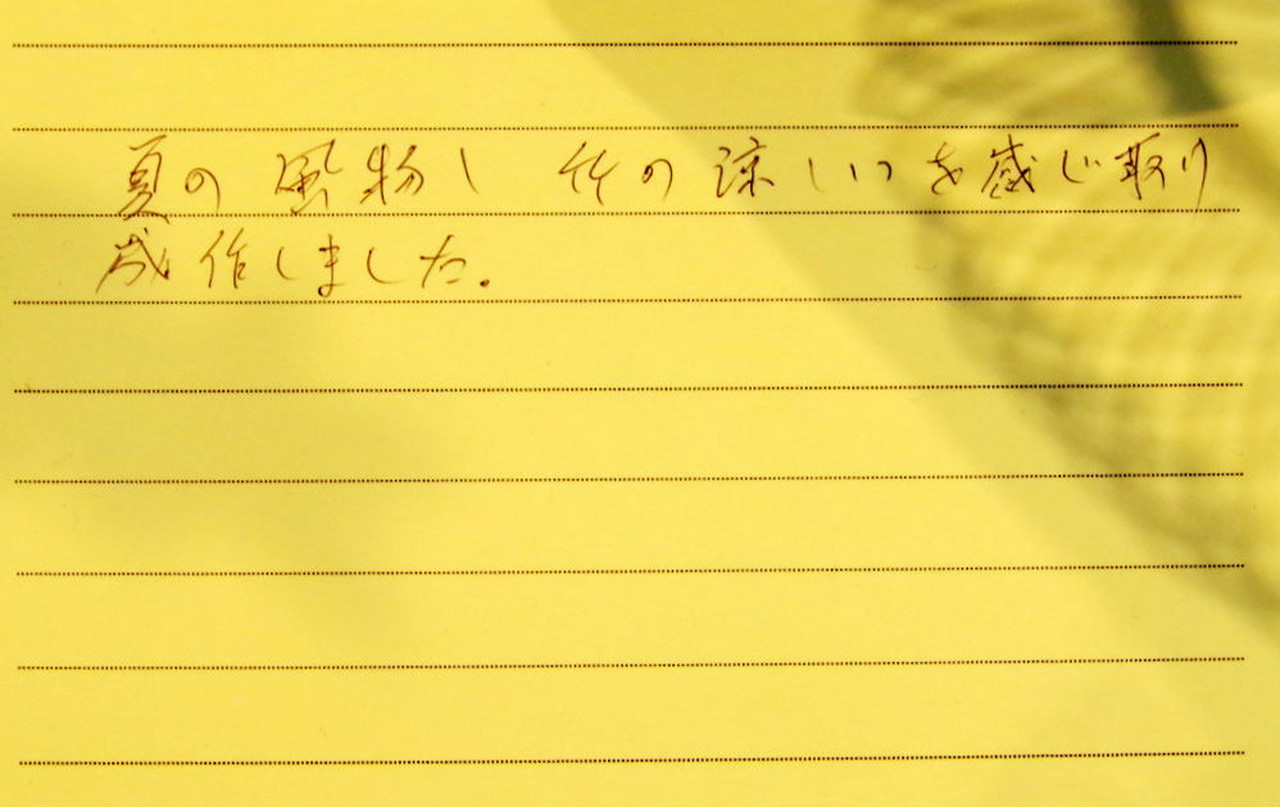 夏の風物し 竹の涼しいつを感じ取り
成作しました。